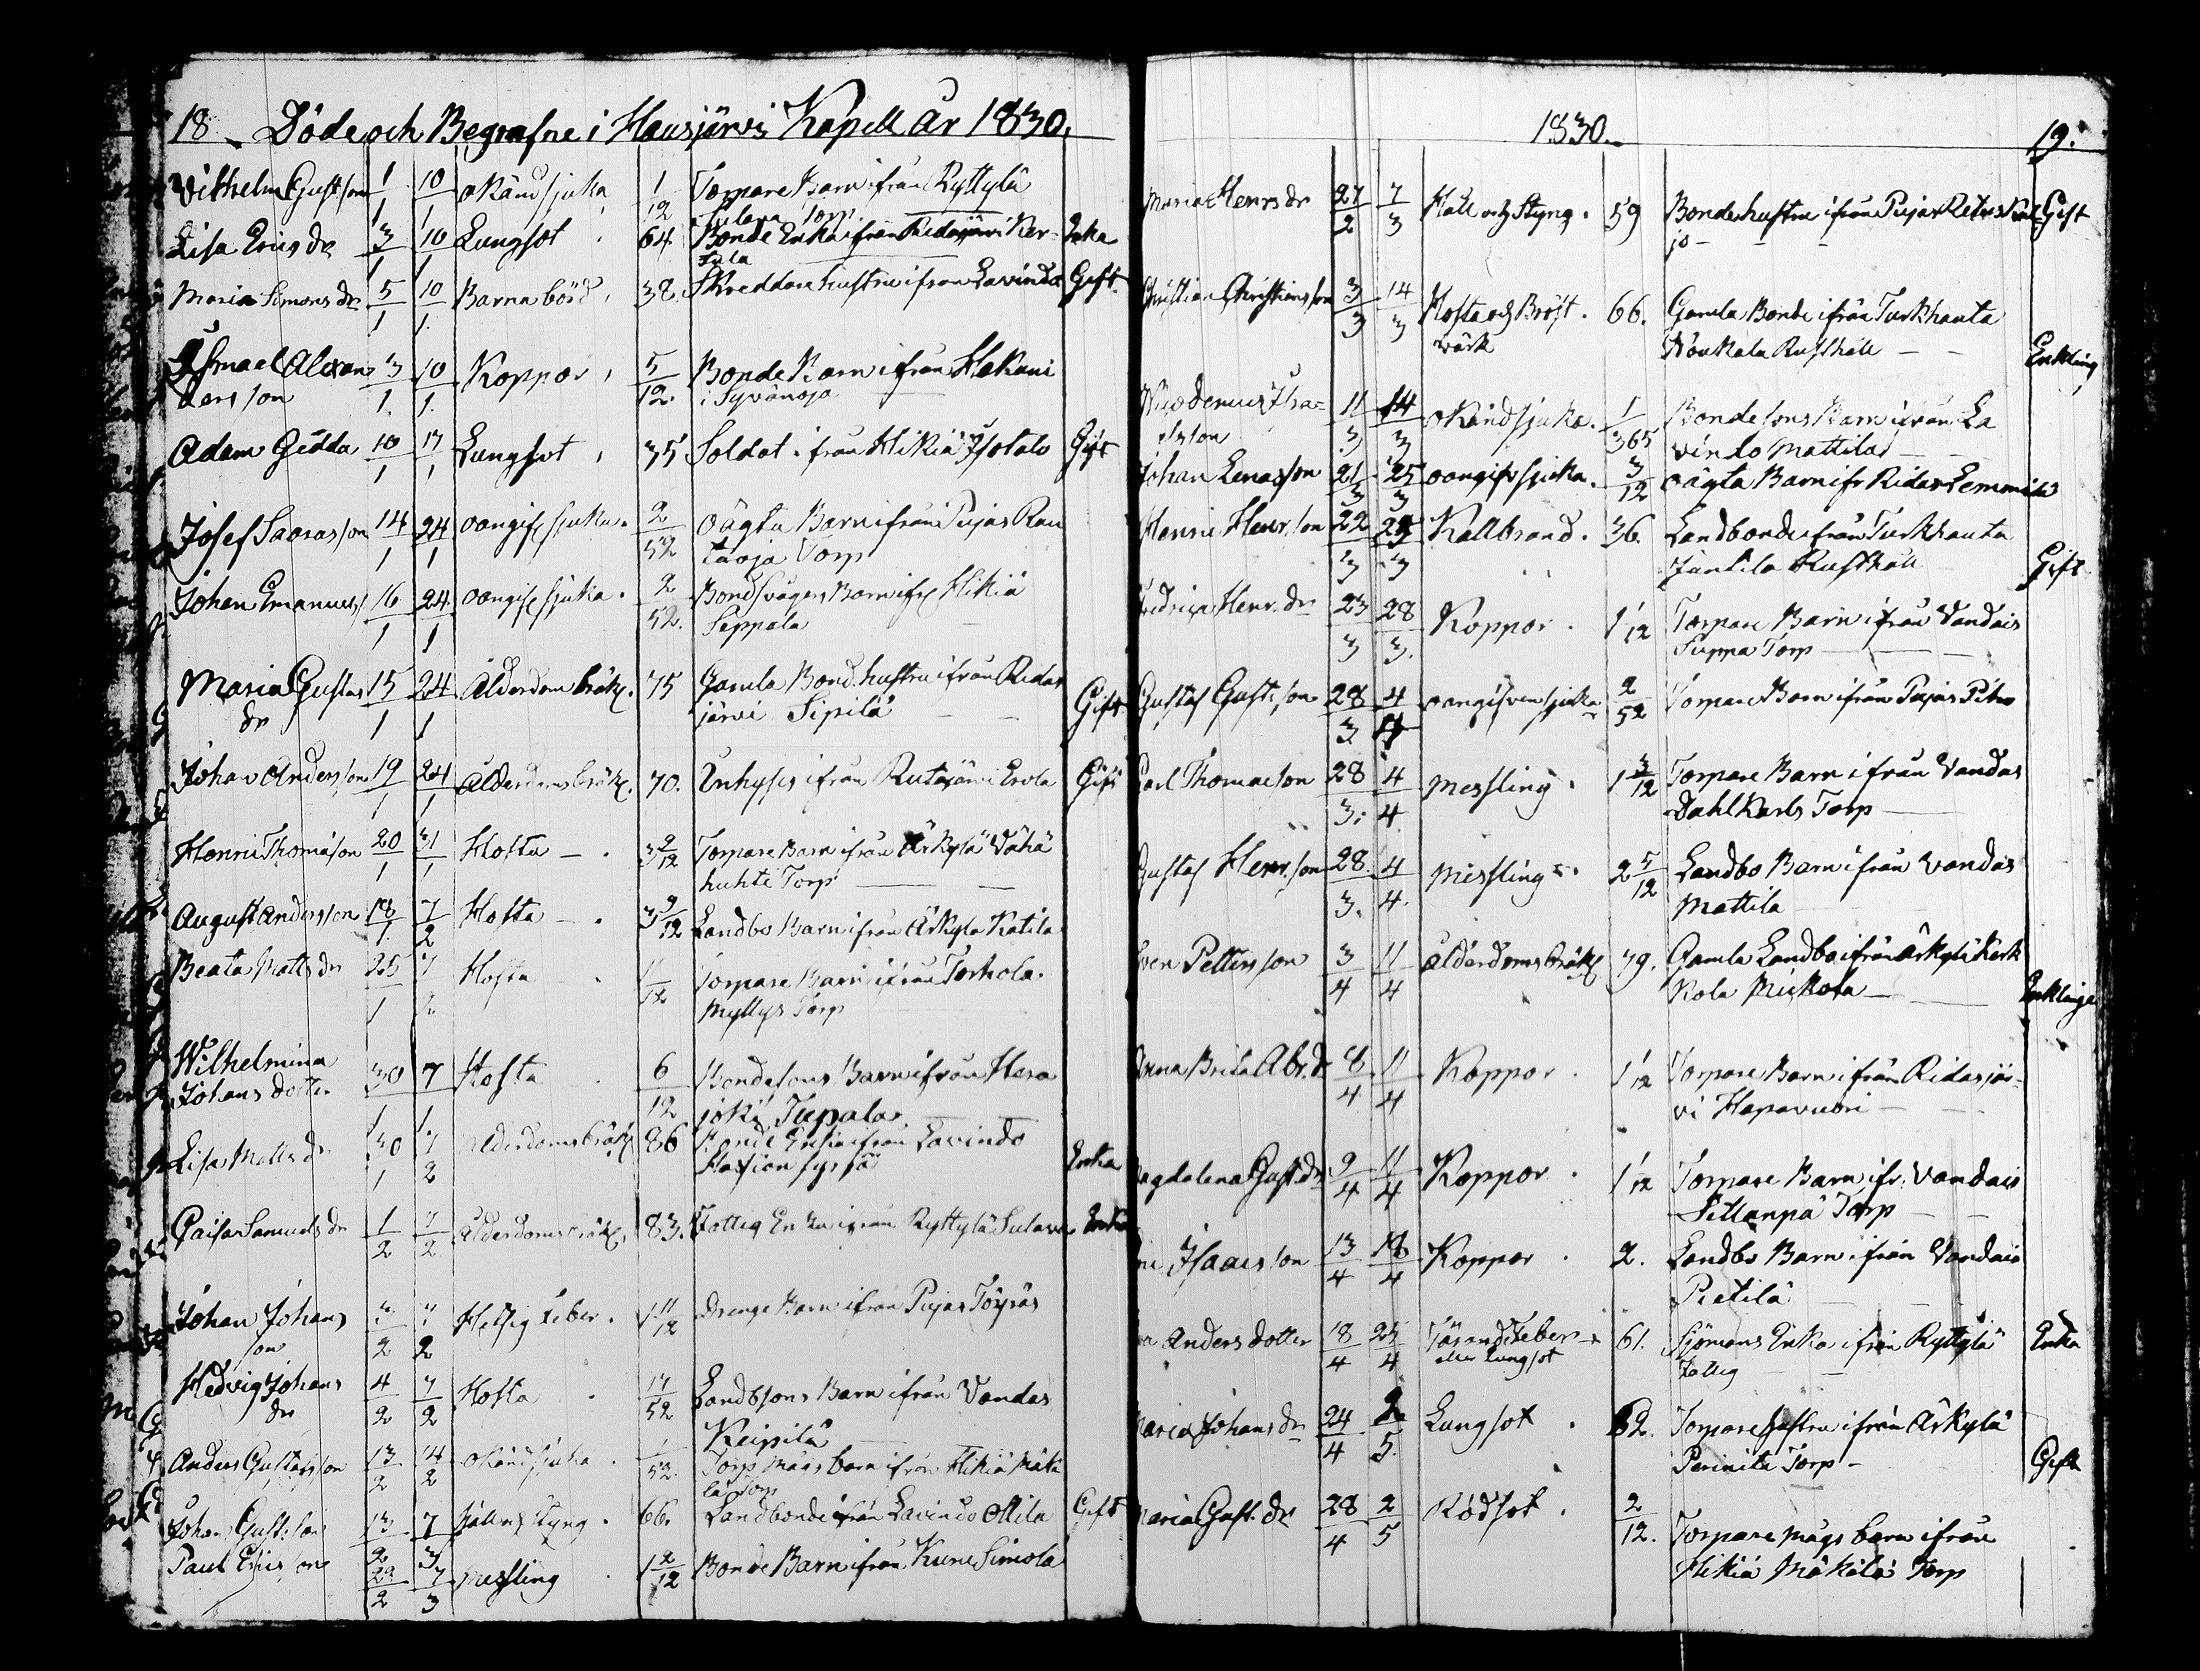 18. Döde och Begrafne i Hausjärvi Kapell år 1830.
Vilhelm Gustsson 1/1 10/1 okänd sjuka 1/12 Torpare Barn ifrån Ryttylä
Sulava Torp
Lisa Erics dr 3/1 10/1 Lungsot 64 Bonde Enka ifrån Ridasjärvi Ker- Enka
tula
Maria Simons dr 5/1 10/1 Barnabörd 38. Skreddare hustru ifrån Lavinda Gift
Ismael Alexan 3/1. 10/1. Koppor 5/12. Bonde Barn ifrån Hakuni
dersson i Syvänoja
Adam Gädda 10/1 17/1 Lungsot 35 Soldat ifrån Hikiä Isotalo Gift
Josef Saarasson 14/1 24/1 oangif sjuka. 2/52 oägta Barn ifrån Pujas Rau
taoja Torp
Johan Emanuels 16/1 24/1 oangif sjuka. 2/52. Bondsvågers Barn ifr Hikiä
Seppälä
Maria Gustas 15/1 24/1 ålderdoms bräkl. 75 Gamla Bond. hustru ifrån Ridas
dr järvi Sipilä Gift
Johan Andersson 19/1 24/1 ålderdoms bräkl. 70. Inhyses ifrån Rutajärvi Erola Gift
Henric Thomasson 20/1 31/1 Hosta 3 2/12 Torpare Barn ifrån Arkylä Vähä
huhti Torp
August Andersson 18/1. 7/2 Hosta 3 9/12 Landbo Barn ifrån Arkylä Katila
Beata Matts dr 25/1 7/2 Hosta 11/12 Torpare Barn ifrån Torhola
Myllys Torp
Wilhelmina
Johans dotter 30/1 7/ Hosta 6/12 Bondesons Barn ifrån Hera
joki Tupala
Lisa Matts dr 30/1 7/2 ålderdoms bräkl 86 Bonde Enka ifrån Lavindo
Enka
Caisa Samuels dr 1/2 7/2 ålderdoms bräkl. 83. Fattig Enka ifrån Ryttylä Sulava Enka
Johan Johans 3/2 7/2 Hetsig Feber. 1 11/12 Drenge Barn ifrån Pujas Töyräs
son
Hedvig Johans 4/2 7/2 Hosta 17/52 Landbsons Barn ifrån Vandas
dr Keipilä
Anders Gustafsson 13/2 14/2 okänd sjuka 1/52. Torp mågs barn ifrån Hikiä Mäki
lä Torp
Johan Gustsson 13/2 7/3 Håll och Styng. 66. Landbonde ifrån Lavindo Ottila Gift
Paul Ericsson 22/2 7/3 Messling 1 2/12 Bonde Barn ifrån Kuru Simola
1830. 19.
Maria Henrs dr 27/2 7/3 Håll och Styng. 59 Bonde hustru ifrån Pujas Gift
Christian Christiansson 3/3 14/3 Hosta och Bröst. 66. Gamla Bonde ifrån Turkhauta
värk Noukala Rusthåll Enkling
Nicodemus Isra= 11/3 14/3 okänd sjuka. 1/365 Bondesons Barn ifrån La
elsson vindo Mattila
Johan Lenasson 21/3 25/3 oangif sjuka. 3/12 oägta Barn ifr Ridas
Henric Henrsson 22/3 25/3 Kallbrand. 36. Landbonde ifrån Turkhauta
Junttila Rusthåll Gift
Fredrica Henr. dr 23/3 28/3. Koppor. 1 1/12 Torpare Barn ifrån Vandais
Suppa Torp
Gustaf Gustsson 28/3. 4/4 oangifven sjuka 2/52 Torpare Barn ifrån Pujas
Carl Thomasson 28/3. 4/4. Messling. 1 3/12 Torpare Barn ifrån Vandas
Dahlkarls Torp
Gustaf Henrsson 28/3. 4/4. Messling. 2 5/12 Landbo Barn ifrån Vandas
Mattila
Sven Pettersson 3/4 11/4 ålderdoms bräkl 79. Gamla Landbo ifrån Arkylä Kerk
kola Mickola Enkling
Anna Brita Abr. dr 8/4 11/4 Koppor. 1 1/12 Torpare Barn ifrån Ridasjär-
vi Hapavuori
Magdalena Gust. dr 9/4 11/4 Koppor. 1 1/12 Torpare Barn ifr. Vandais
Sillanpä Torp
Isaacsson 13/4 18/4 Koppor. 2. Landbo Barn ifrån Vandais
Pietilä
Anders dotter 18/4 25/4 Feber 61. Sjömans Enka ifrån Ryttylä Enka
eller Lungsot Fattig
Maria Johans dr 24/4 2/5. Lungsot. 62. Torpare hustru ifrån Arkylä
Torp Gift
Maria Gust. dr 28/4 2/5 Rödsot. 2/12. Torpare mågs barn ifrån
Hikiä Mäkilä Torp